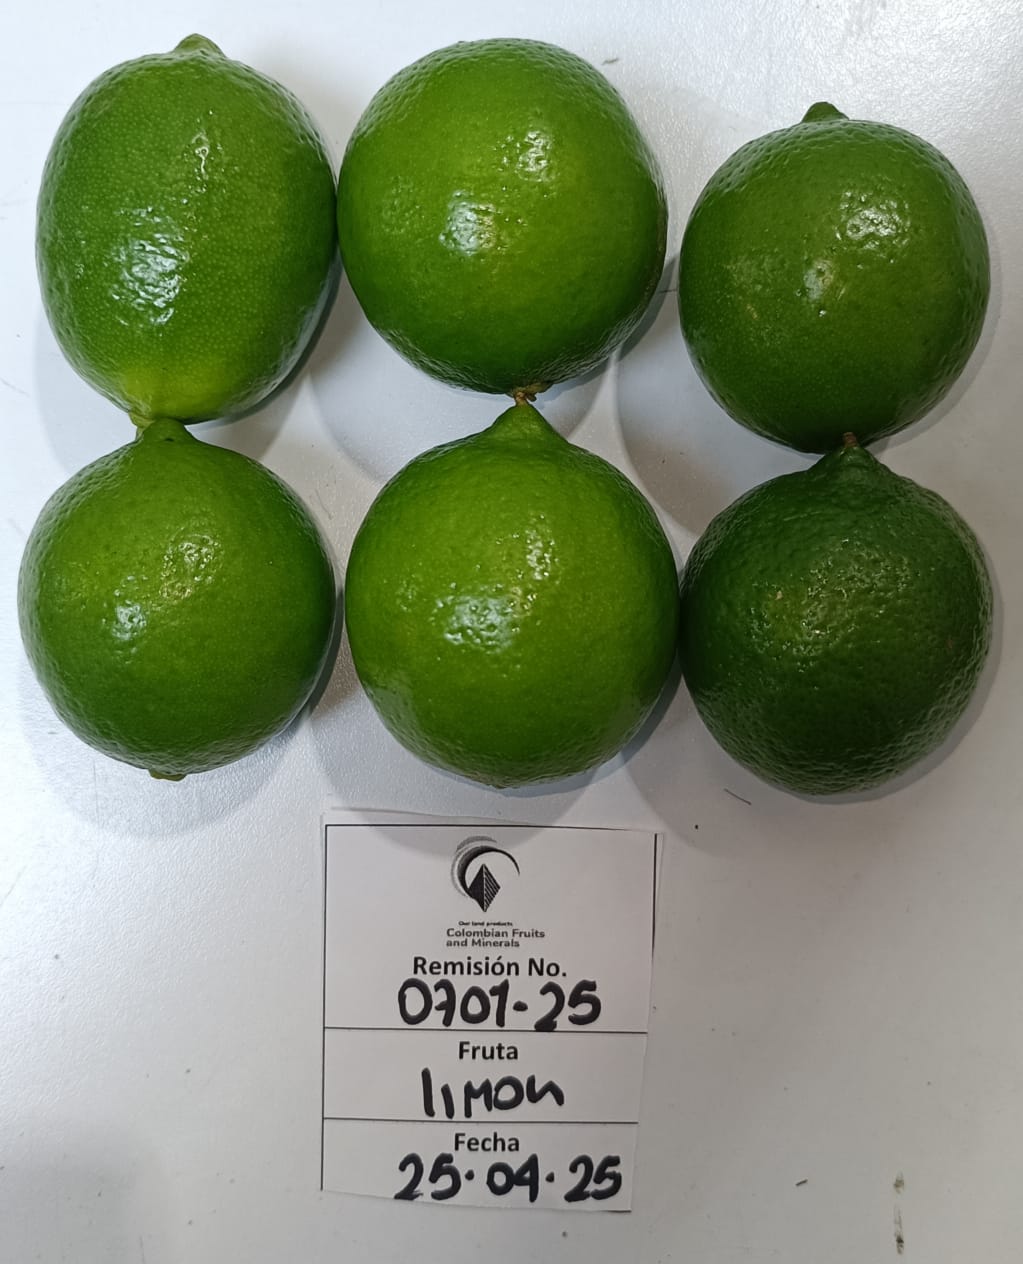 Our land products
Colombian Fruits
and Minerals
Remisión No.
0701-25
Fruta
limon
Fecha
25.04.25